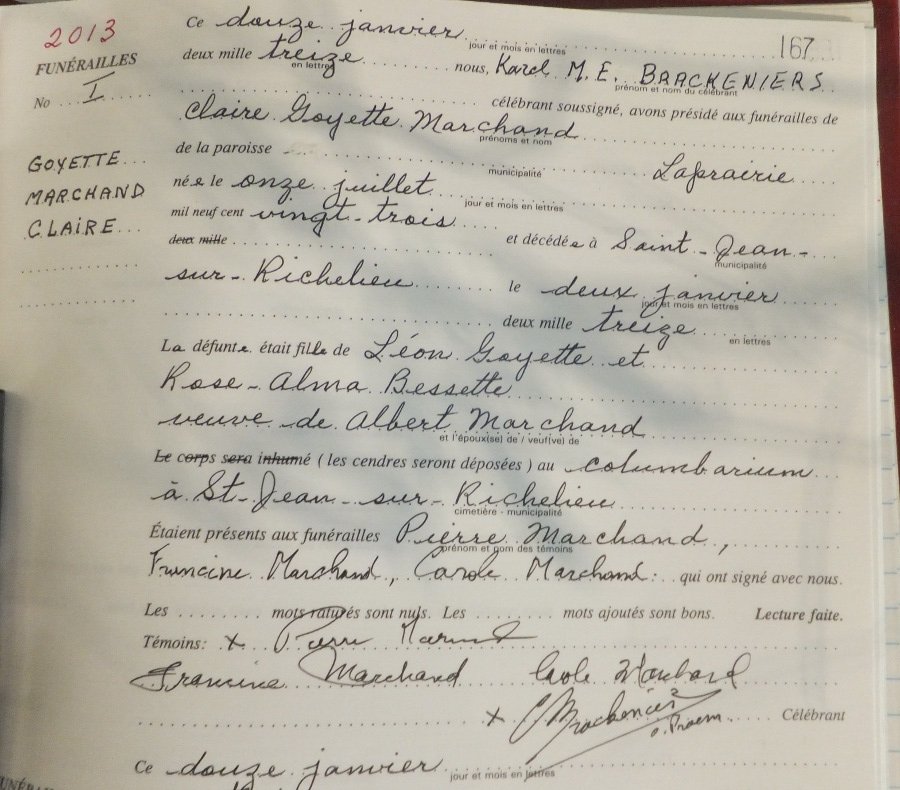 2013
FUNÉRAILLES
No I
GOYETTE
MARCHAND
CLAIRE
167
Ce douze janvier
jour et mois en lettres
deux mille treize nous, Karel M. E. BRACKENIERS
en lettres prénom et nom du célébrant
célébrant soussigné, avons présidé aux funérailles de
Claire Goyette Marchand
prénoms et nom
de la paroisse Laprairie
municipalité
née le onze juillet
jour et mois en lettres
mil neuf cent vingt-trois
deux mille et décédée à Saint-Jean-
municipalité
sur-Richelieu le deux janvier
jour et mois en lettres
deux mille treize
en lettres
La défunte était fille de Léon Goyette et
Rose-Alma Bessette
veuve de Albert Marchand
et l'époux(se) de / veuf(ve) de
Le corps sera inhumé (les cendres seront déposées) au columbarium
à St-Jean-sur-Richelieu
cimetière - municipalité
Étaient présents aux funérailles Pierre Marchand,
prénom et nom des témoins
Francine Marchand, Carole Marchand: qui ont signé avec nous.
Les mots raturés sont nuls. Les mots ajoutés sont bons. Lecture faite.
Témoins: x Pierre Marchand
Francine Marchand Carole Marchand
x Brackeniers
o. Praem. Célébrant
Ce douze janvier
jour et mois en lettres